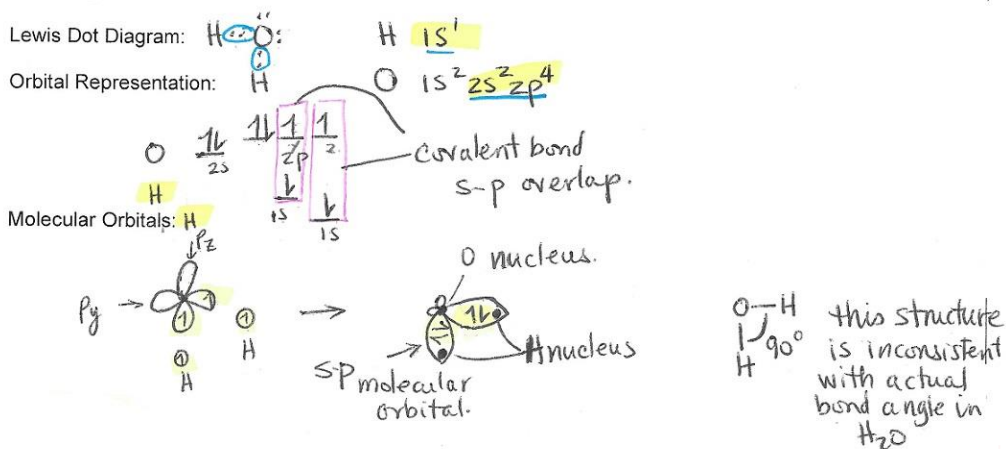 Lewis Dot Diagram: H O H H 1s¹
Orbital Representation: O 1s² 2s² 2p⁴
O 1↿⇂ 2s 1⇂ 1 2p 1 2
covalent bond
s-p overlap.
H 1s
Molecular Orbitals: H 1s
Pz
Py
H
H
O nucleus.
H nucleus
sp molecular
orbital.
O-H
H 90°
this structure
is inconsistent
with actual
bond angle in
H₂O